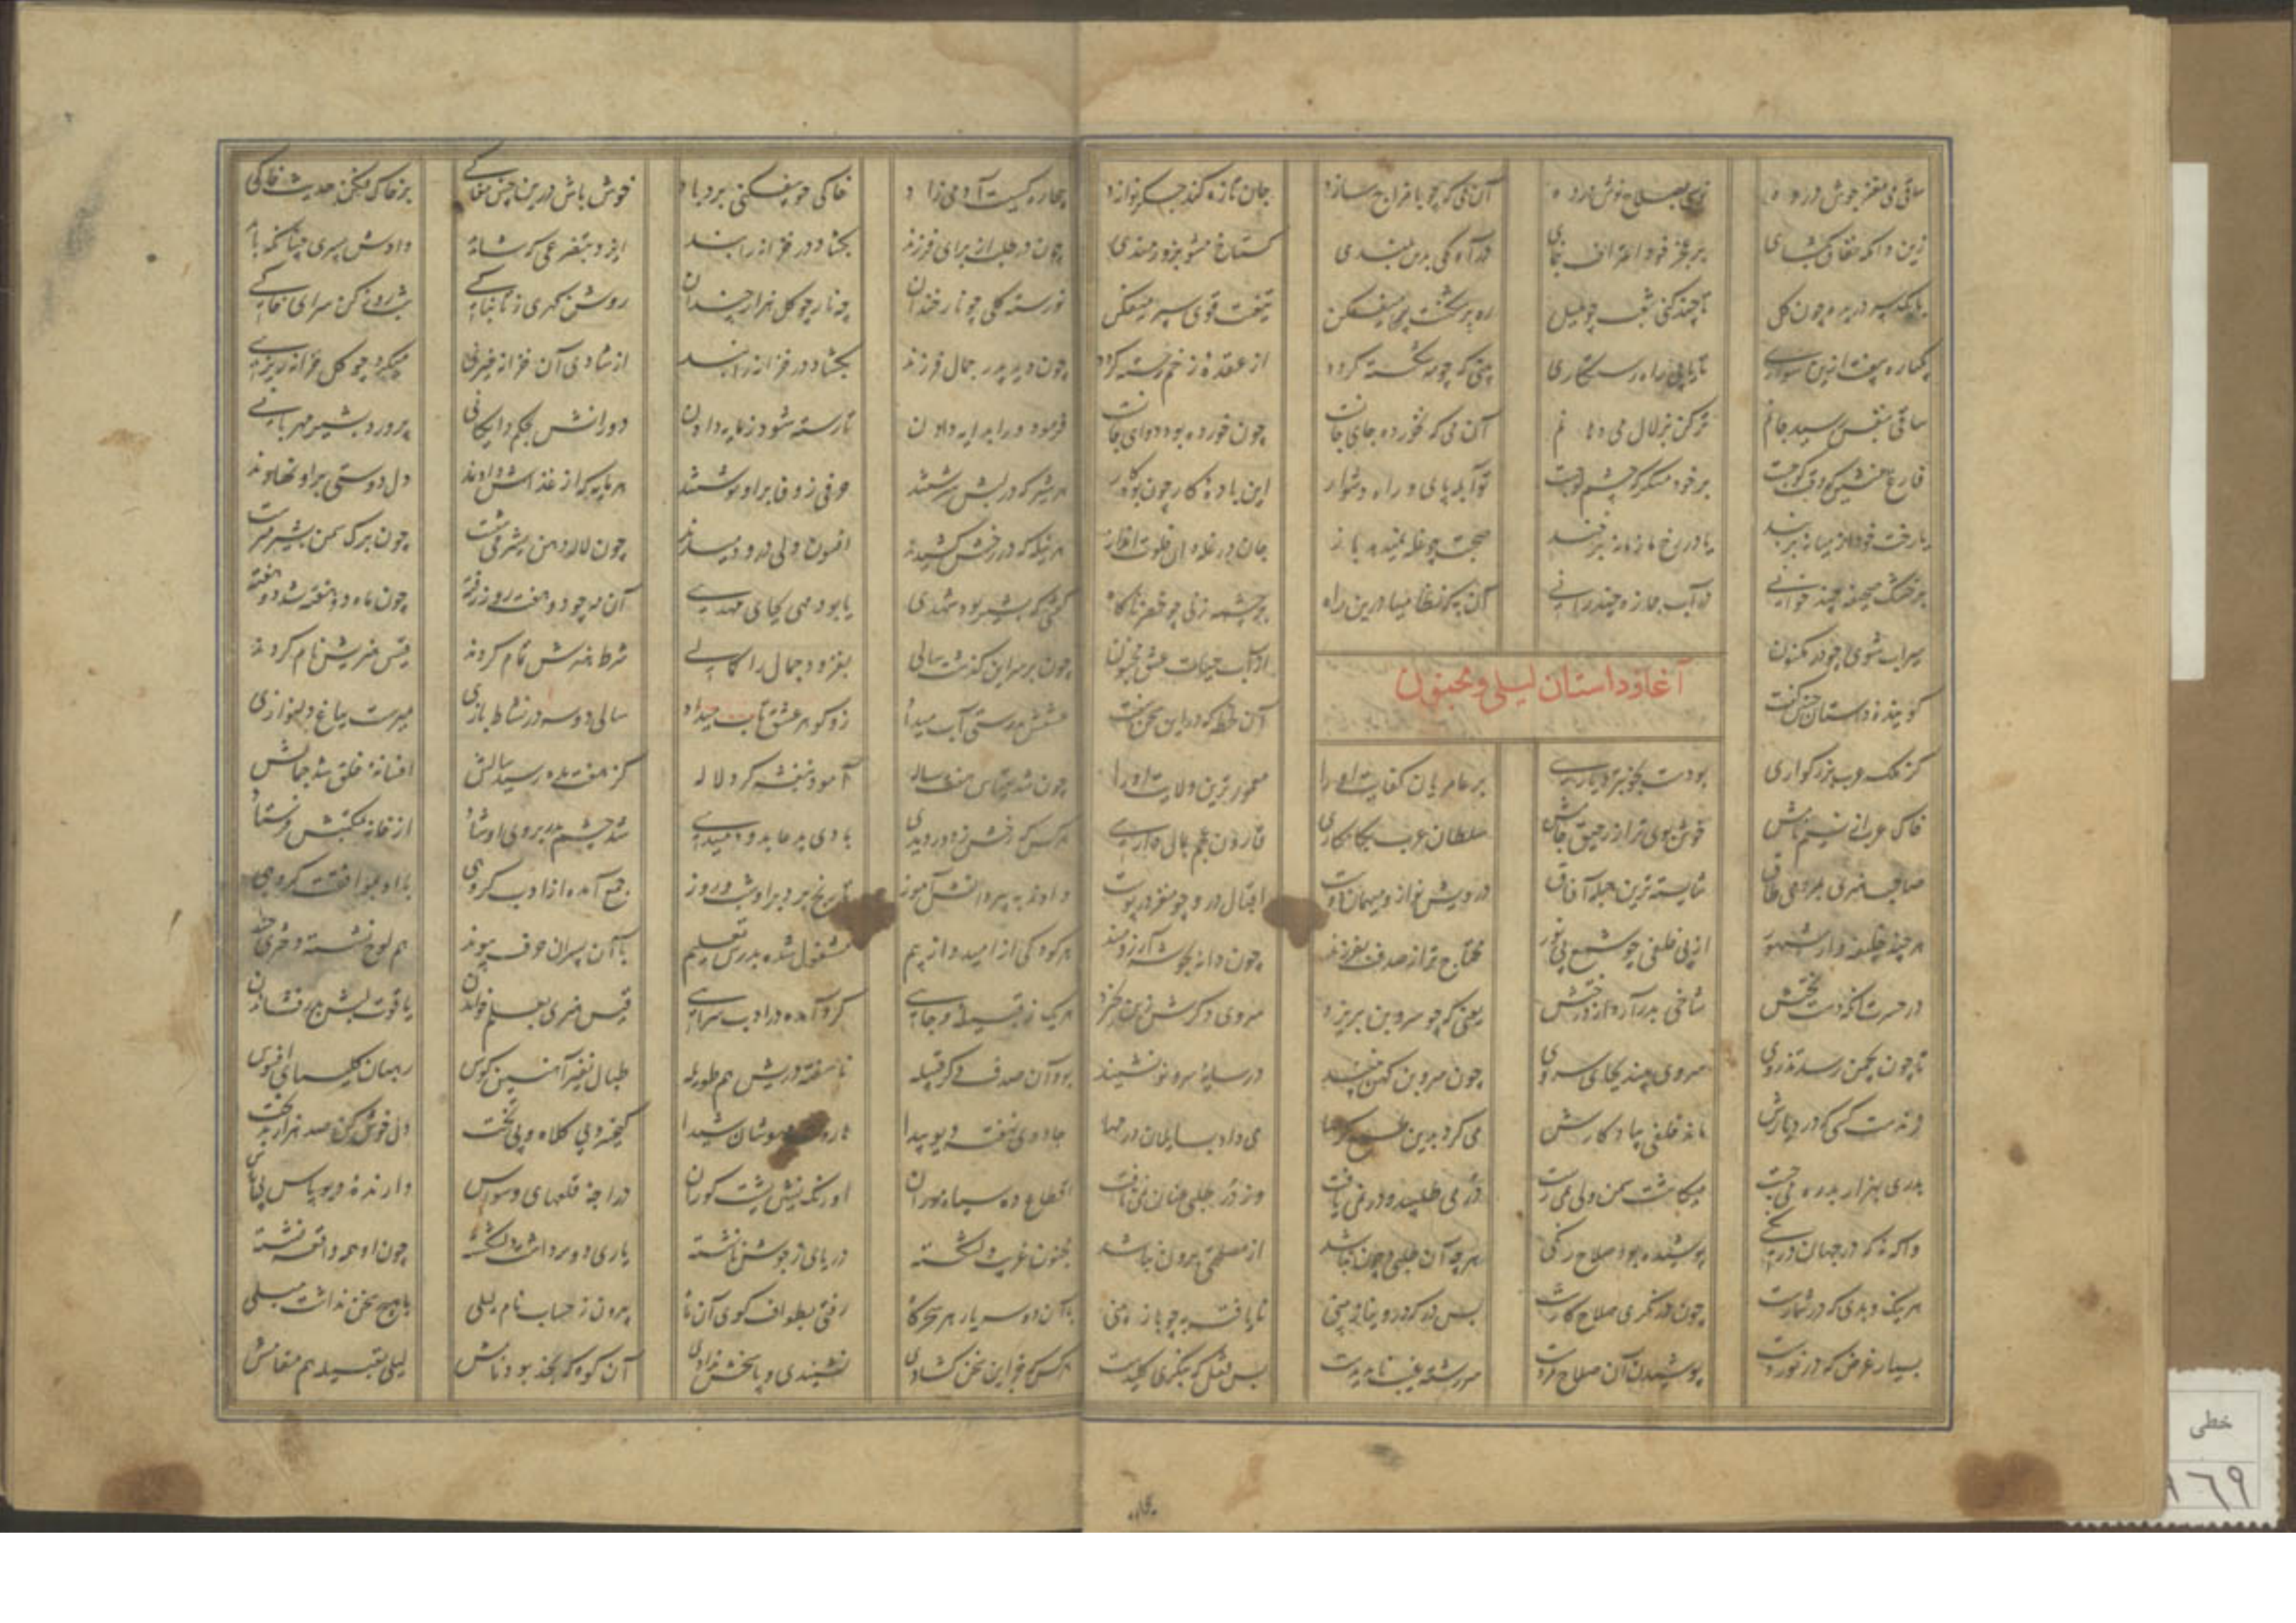 ساقی می مغز جوش در ده نوشی بصلاح نوش در ده آن می که چو با مزاج سازد جان تازه کند جگر نوازد
زین دامگه بگشای بر عجز خود اعتراف بنمای در راه بدین بلندی گستاخ مشو بزورمندی
با یک سپر دریده چون گل تا چند کنی شغب چو بلبل ره پر شکنست پر بیفکن تیغت قوی سپر بیفکن
یکباره بیفت ازین سواری تا یابی راه رستگاری بینی که چو مه شکسته گردد از عقده زخم رسته گردد
ساقی بنفس رسید جانم تر کن بزلال می دهانم آن می که نخورده جای جانست چون خورده بود دوای جانست
فارغ منشین که وقت کوچست بر خود منگر که چشم لوچست تو آبله پای و راه دشوار این باده کار چون بود کار
یا رخت خود از میانه بربند یا در برخ زمانه بربند
بر خشک صحیفه چند خوانی در آب جمازه چند رانی آن به که نظامیا درین راه بر چشمه زنی چو خضر ناگاه
سیراب شوی چو در مکنون از آب حیات عشق مجنون
آغاز داستان لیلی و مجنون
گوینده داستان چنین گفت آن لحظه که در این سخن سفت
کز ملک عرب بزرگواری بودست بخوبتر دیاری بر عامریان کفایت او را معمورترین ولایت او را
خاک عرب از نسیم نامش خوش بوی تر از رحیق جامش سلطان عرب بکامکاری قارون عجم بمال داری
صاحب هنری بمردمی طاق شایسته ترین جمله آفاق درویش نواز و میهمان دوست اقبال در او چو مغز در پوست
هر چند خلیفه وار مشهور از بی خلفی چو شمع بی نور محتاج تر از صدف بفرزند چون دانه بخوشه آرزومند
در حسرت آنکه دست بختش شاخی بدر آرد از درختش یعنی که چو سرو بن بریزد سروی دگرش ز بن بخیزد
تا چون بچمن رسد تذروی سروی بیند بجای سروی چون سرو بن کهن نبیند در سایه سرو نو نشیند
زندست کسی که در دیارش ماند خلفی بیادگارش می کرد بدین طمع کرمها می داد بسایلان درمها
بدری بهزار بدره می جست میکاشت سمن ولی نمی رست در می طلبید و در نمی یافت وز در طلبی عنان نمی تافت
واگه نه که در جهان درنگی پوشیده بود صلاح رنگی هرچه آن طلبی چو آن نباشد از مصلحتی برون نباشد
هر نیک و بدی که در شمارست چون درنگری صلاح کارست بس در که بینی نا یافته به چو باز بینی
بسیار غرض که در نوردست پوشیدن آن صلاح مردست سررشته غیب ناپدیدست بس قفل که بنگری کلیدست
بیچاره کیست آدمی زاد خاکی چو بفکنی برد باد خوش باش درین چنین مغاکی بر خاک مکن حدیث خاکی
چون در طلب از برای فرزند بگشاد در خزانه را بند ایزد بتضرعی که شاید دادش پسری چنانکه باید
نورسته گلی چو نار خندان چه نار چو گل هزار چندان روشن گهری ز تابناکی شب روز کن سرای خاکی
چون دید پدر جمال فرزند بگشاد در خزانه را بند از شادی آن خزانه خیزی میکرد چو گل خزانه ریزی
فرمود ورا بدایه دادن تا رسته شود ز مایه دادن دورانش بحکم دایگانی پرورد بشیر مهربانی
هر شیر که در لبش سرشتند حرفی ز وفا بر او نوشتند هر مایه که از غذاش دادند دل دوستی بر او نهادند
هر نیل که در رخش کشیدند افسون دلی در او دمیدند چون لاله دهن بشیر می شست چون برگ سمن بشیر می رست
گفتی که بشیر بود شهدی یا بود مهی بجای مهدی آن مه چو دو هفته روز رفته چون ماه دو هفته شد دو هفته
شرط هنرش تمام کردند قیس هنریش نام کردند
چون بر سر این گذشت سالی بفزود جمال را کمالی
عشقش بدرستی آب میداد زو گوهر عشق تاب میداد سالی دو سه در نشاط بازی میرست بباغ دلنوازی
چون شد بقیاس هفت ساله آمود بنفشه گرد لاله کز هفت بده رسید سالش افسانه خلق شد جمالش
هر کس که رخش ز دور دیدی بادی ز دعا بر او دمیدی شد چشم پدر بروی او شاد از خانه بمکتبش فرستاد
دادند به پیر دانش آموز تا رنج برد بر او شب و روز جمع آمده از ادب گروهی با او بموافقت گروهی
هر کودکی از امید و از بیم مشغول شده بدرس تعلیم با آن پسران حرف پیوند هم لوح نشسته دختری چند
هر یک ز قبیله و جایی گرد آمده در ادب سرایی قیس هنری بعلم خواندن یاقوت لبش بدر فشاندن
بود آن صدف قبیله ناسفته دریش هم طویله طبال نفیر آهنین کوس رهبان کلیسای افسوس
جادوی نهفته دیو پیدا شیدا کیخسرو بی کلاه و بی تخت دل خوش کن صد هزار بی رخت
اقطاع ده سپاه موران اورنگ نشین پشت گوران دراجه قلعهای وسواس دارنده دیر پاس بی پاس
مجنون غریب دلشکسته دریای ز جوش نانشسته یاری دو دلشده چون او همه واقعه نشسته
با آن دو سه یار هر سحرگاه رفتی بطواف کوی آن ماه بیرون ز حساب نام لیلی با هیچ سخن نداشت میلی
هر کس که جز این سخن گشادی نشنیدی و پاسخش ندادی آن کوه که نجد بود نامش لیلی بقبیله هم مقامش
خطی